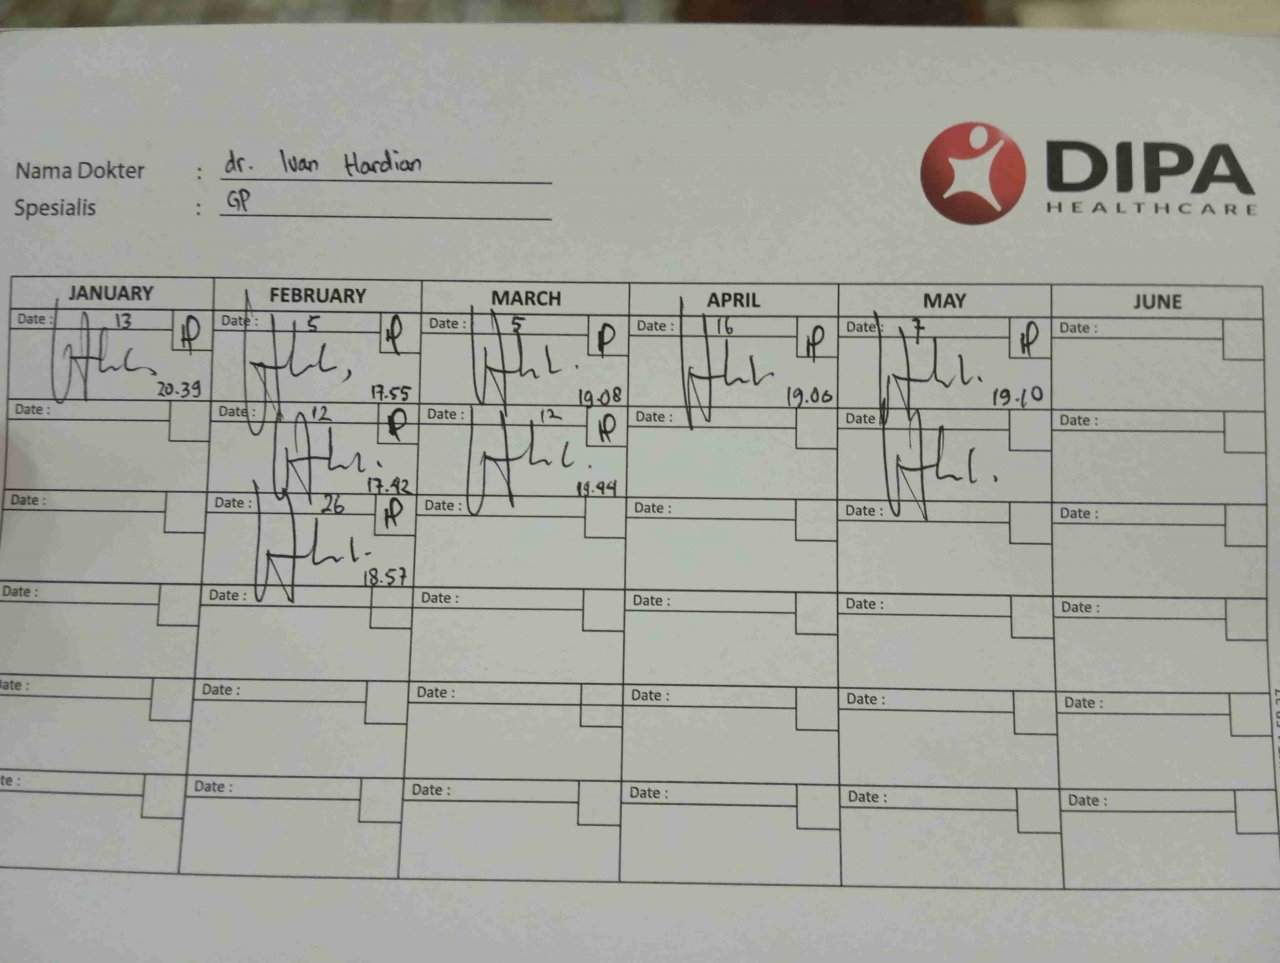 DIPA
HEALTHCARE
Nama Dokter : dr. Ivan Hardian
Spesialis : GP
JANUARY FEBRUARY MARCH APRIL MAY JUNE
Date : 13 Date : 5 Date : 5 Date : 16 Date : 7 Date :
20.39 17.55 19.08 19.06 19.10
Date : Date : 12 Date : 12 Date : Date : Date :
17.42 19.44
Date : Date : 26 Date : Date : Date : Date :
18.57
Date : Date : Date : Date : Date : Date :
ate : Date : Date : Date : Date : Date :
te : Date : Date : Date : Date : Date :